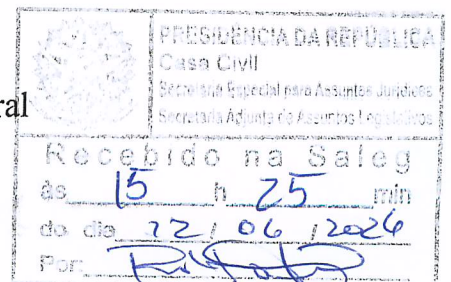 PRESIDÊNCIA DA REPÚBLICA
Casa Civil
ral
Secretaria Especial para Assuntos Jurídicos
Secretaria Adjunta de Assuntos Legislativos
Recebido na Saleg
às 15 h 25 min
do dia / 06 /
Por: